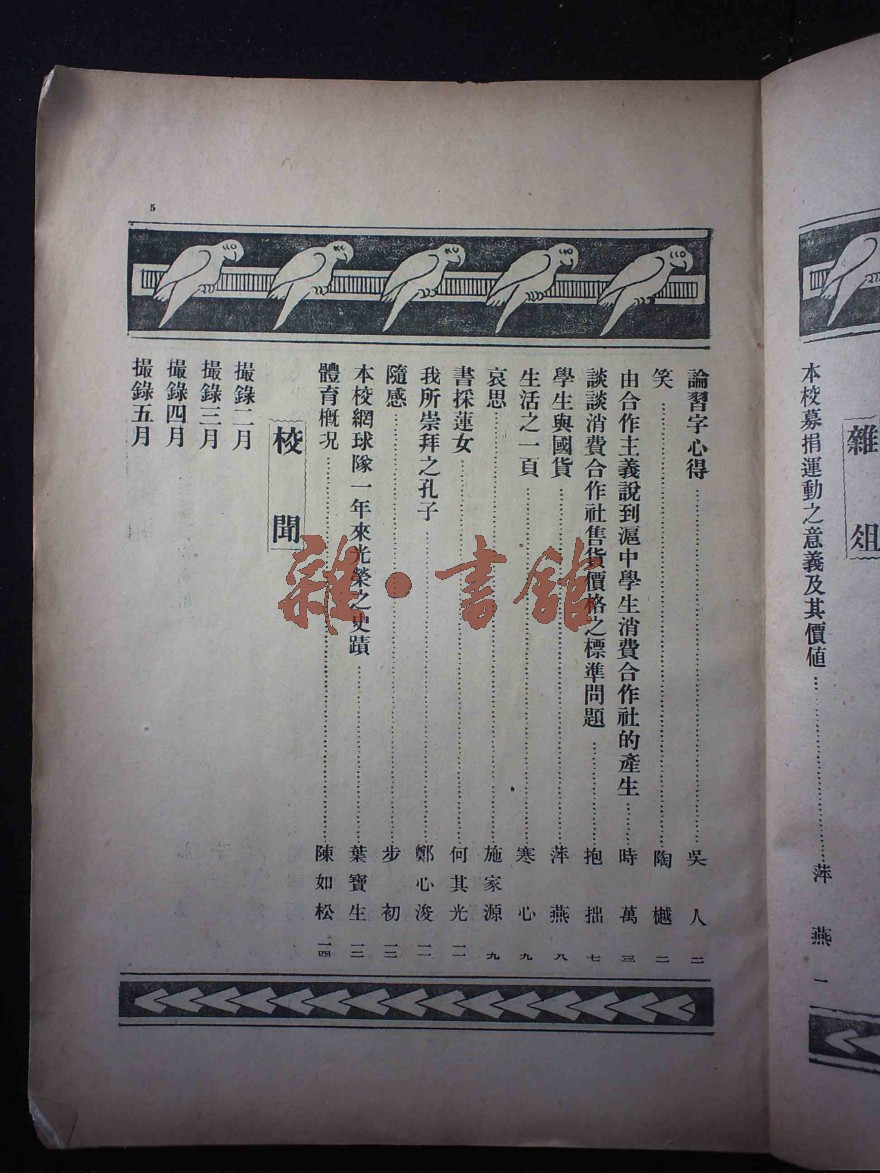 雜俎
本校募捐運動之意義及其價値…………萍燕 一
5
論習字心得…………吳人 二
笑…………陶樾 二
由合作主義說到滬中學生消費合作社的產生…………時萬 三
談談消費合作社售貨價格之標準問題…………抱拙 七
學生與國貨…………萍燕 八
生活之一頁…………寒心 九
哀思…………施家源 九
書採蓮女…………何其光 一一
我所崇拜之孔子…………鄭心浚 一一
隨感…………步初 一三
本校網球隊一年來光榮之史蹟…………葉寶生 一三
體育槪況…………陳如松 一四
校聞
撮錄二月
撮錄三月
撮錄四月
撮錄五月
雜·書館